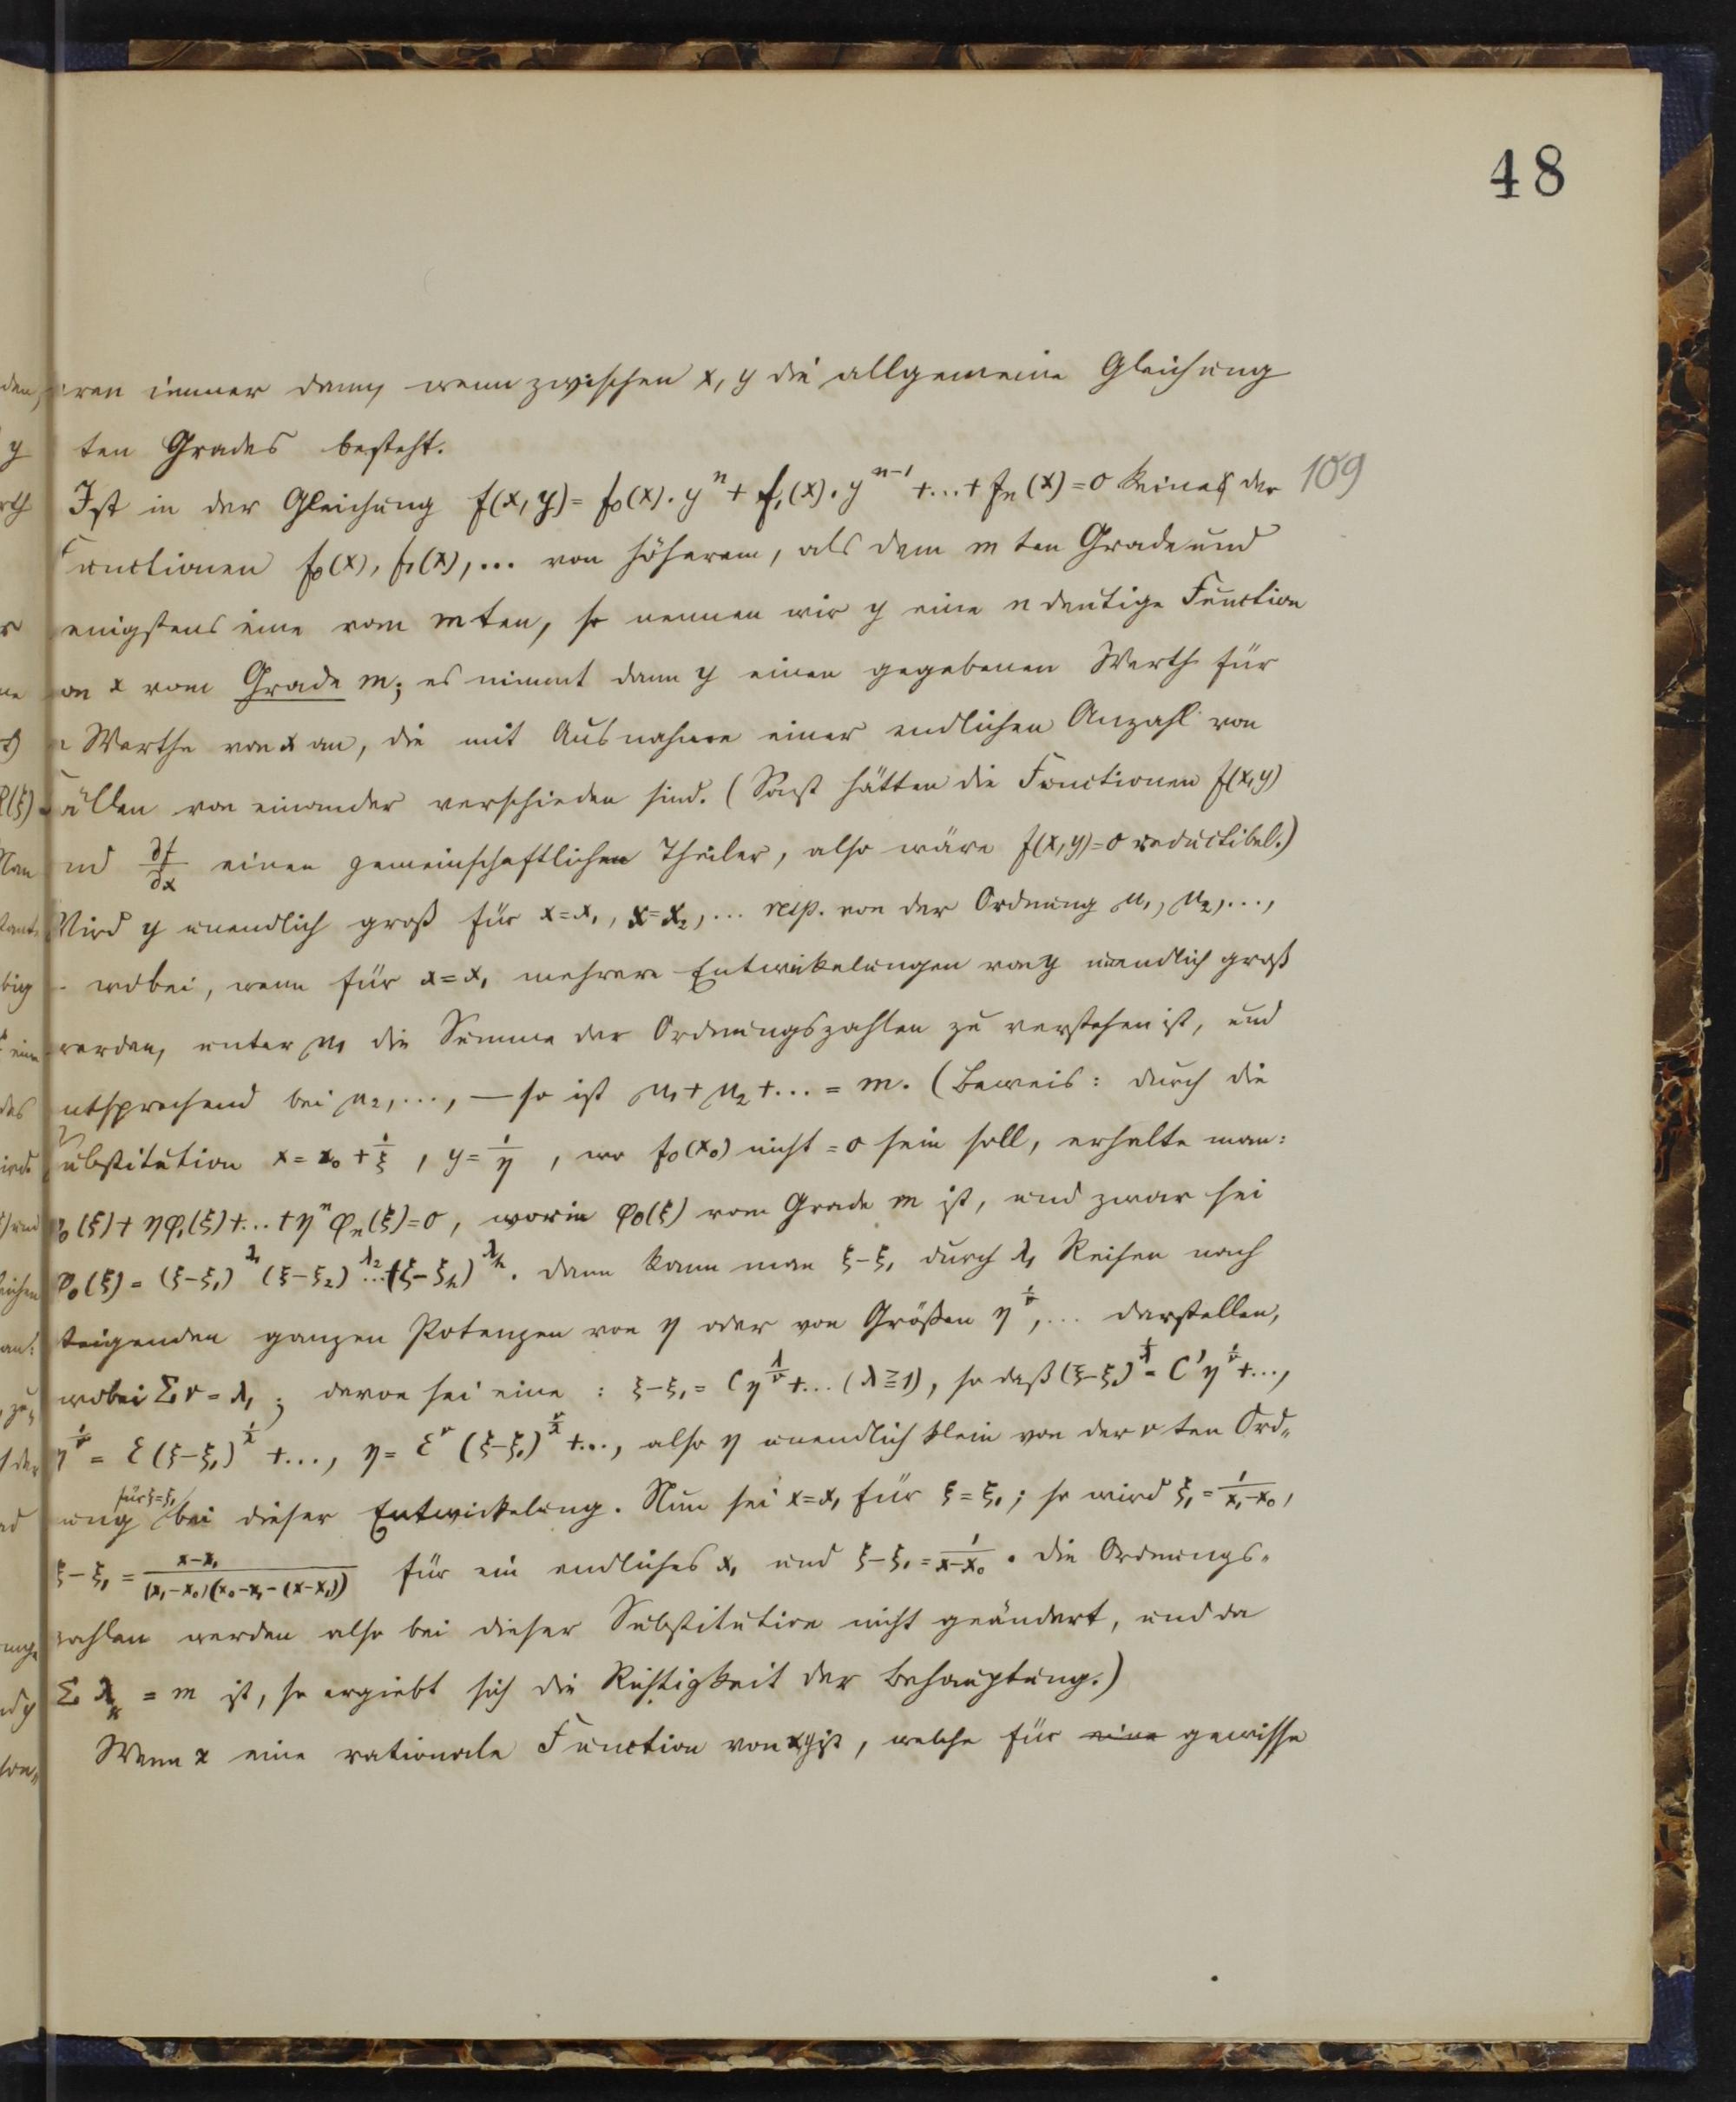 48
ren immer dann, wenn zwischen x, y die allgemeine Gleichung
ten Grades besteht.
Ist in der Gleichung f(x, y) = f₀(x)·yⁿ + f₁(x)·yⁿ⁻¹ + … + fₙ(x) = 0 keine der 109
Functionen f₀(x), f₁(x), … von höherem, als dem m ten Grade und
enigstens eine vom m ten, so nennen wir y eine n deutige Function
on x vom Grade m; es nimmt dann y einen gegebenen Werth für
Werthe von x an, die mit Ausnahme einer endlichen Anzahl von
ällen von einander verschieden sind. (Sonst hätten die Functionen f(x,y)
nd ∂f/∂x einen gemeinschaftlichen Theiler, also wäre f(x,y)=0 reductibel.)
Wird y unendlich groß für x=x₁, x=x₂, … resp. von der Ordnung μ₁, μ₂, …,
– wobei, wenn für x=x₁ mehrere Entwickelungen von y unendlich groß
werden, unter μ₁ die Summe der Ordnungszahlen zu verstehen ist, und
ntsprechend bei μ₂, …, — so ist μ₁+μ₂+… = m. (Beweis: durch die
Substitution x = x₀ + 1/ξ, y = 1/η, wo f₀(x₀) nicht = 0 sein soll, erhalte man:
φ₀(ξ) + ηφ₁(ξ) + … + ηⁿφₙ(ξ) = 0, worin φ₀(ξ) vom Grade m ist, und zwar sei
φ₀(ξ) = (ξ-ξ₁)^λ₁ (ξ-ξ₂)^λ₂ … (ξ-ξₕ)^λₕ. Dann kann man ξ-ξ₁ durch λ₁ Reihen nach
teigenden ganzen Potenzen von η oder von Größen η^(1/ν), … darstellen,
wobei Σν = λ₁; davon sei eine: ξ-ξ₁ = Cη^(λ/ν) + … (λ ≧ 1), so daß (ξ-ξ₁)^(1/λ) = C'η^(1/ν) + …,
η^(1/ν) = ℰ(ξ-ξ₁)^(1/λ) + …, η = ℰ^ν (ξ-ξ₁)^(ν/λ) + …, also η unendlich klein von der ν ten Ord„
ung für ξ=ξ₁ bei dieser Entwickelung. Nun sei x=x₁ für ξ=ξ₁; so wird ξ₁ = 1/(x₁-x₀),
ξ-ξ₁ = (x-x₁)/((x₁-x₀)(x₀-x₁-(x-x₁))) für ein endliches x₁ und ξ-ξ₁ = 1/(x-x₀). Die Ordnungs„
zahlen werden also bei dieser Substitution nicht geändert, und da
Σ λₖ = m ist, so ergiebt sich die Richtigkeit der Behauptung.)
Wenn z eine rationale Function von x,y ist, welche für eine gewisse